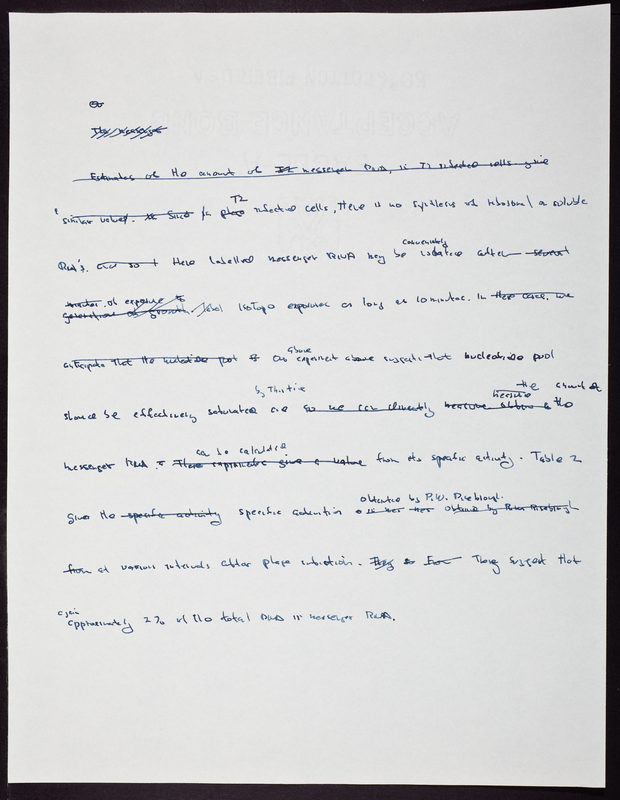 Estimates of the amount of messenger RNA, in T2 infected cells give
T2
similar values. Since in phage infected cells, there is no synthesis of ribosomal or soluble
conveniently
RNA's. and so t Here labelled messenger RNA may be isolated after several
minutes of exposure to
generations of growth. isotope exposures as long as 10 minutes. In these cases, we
above
anticipate that the nucleotide pool of Our experiment above suggests that nucleotide pool
by this time the amount of
measure
should be effectively saturated and so we can directly measure the
can be calculated
messenger RNA. These experiments give a value from its specific activity. Table 2
obtained by P.W. Risebrough.
gives the specific activity specific activities obtained by Peter Risebrough
from at various intervals after phage infection. They suggest that
again
approximately 2% of the total RNA is messenger RNA.